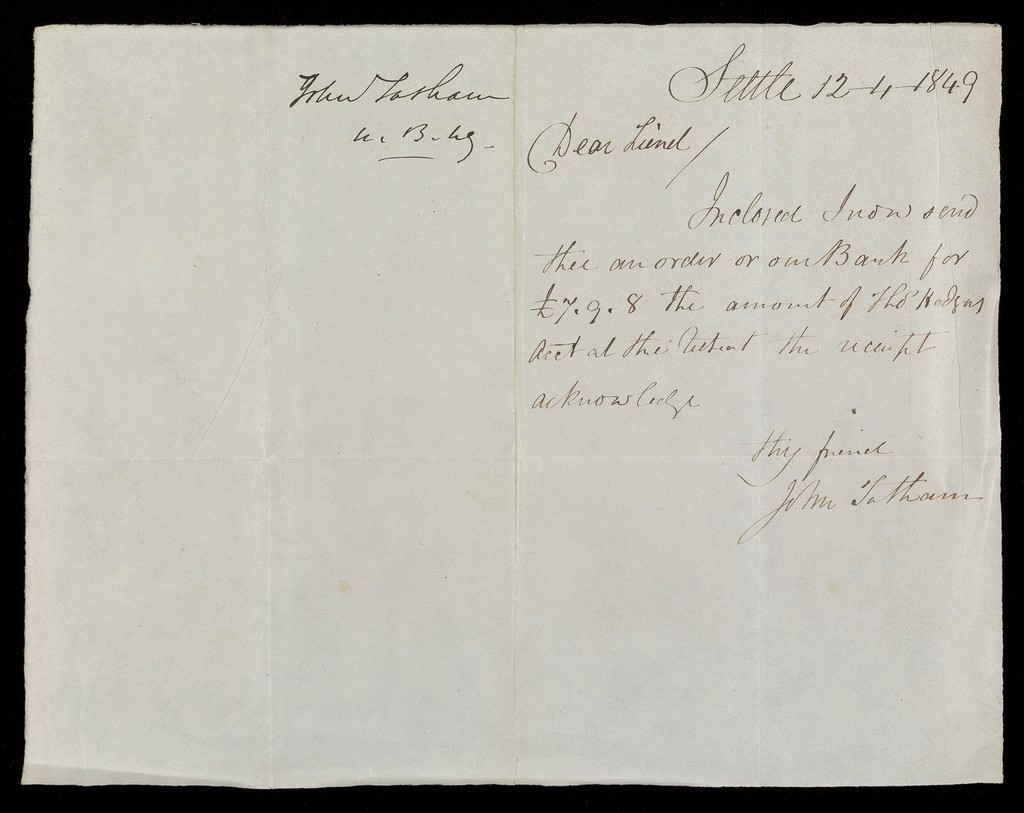 John Tatham
Settle 12-4-1849
Dear Friend /
Inclosed I now send
thee an order or our Bank for
£7.9.8 the amount of Thos Hodgns
Acct at the Retreat the receipt
acknowledge
thy friend
John Tatham